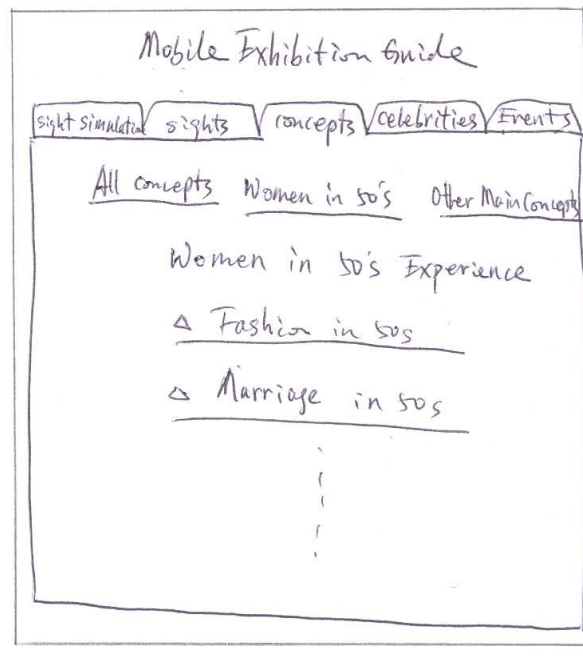 Mobile Exhibition Guide
Sight Simulation sights concepts celebrities Events
All concepts Women in 50's Other Main Concepts
Women in 50's Experience
Δ Fashion in 50s
Δ Marriage in 50s